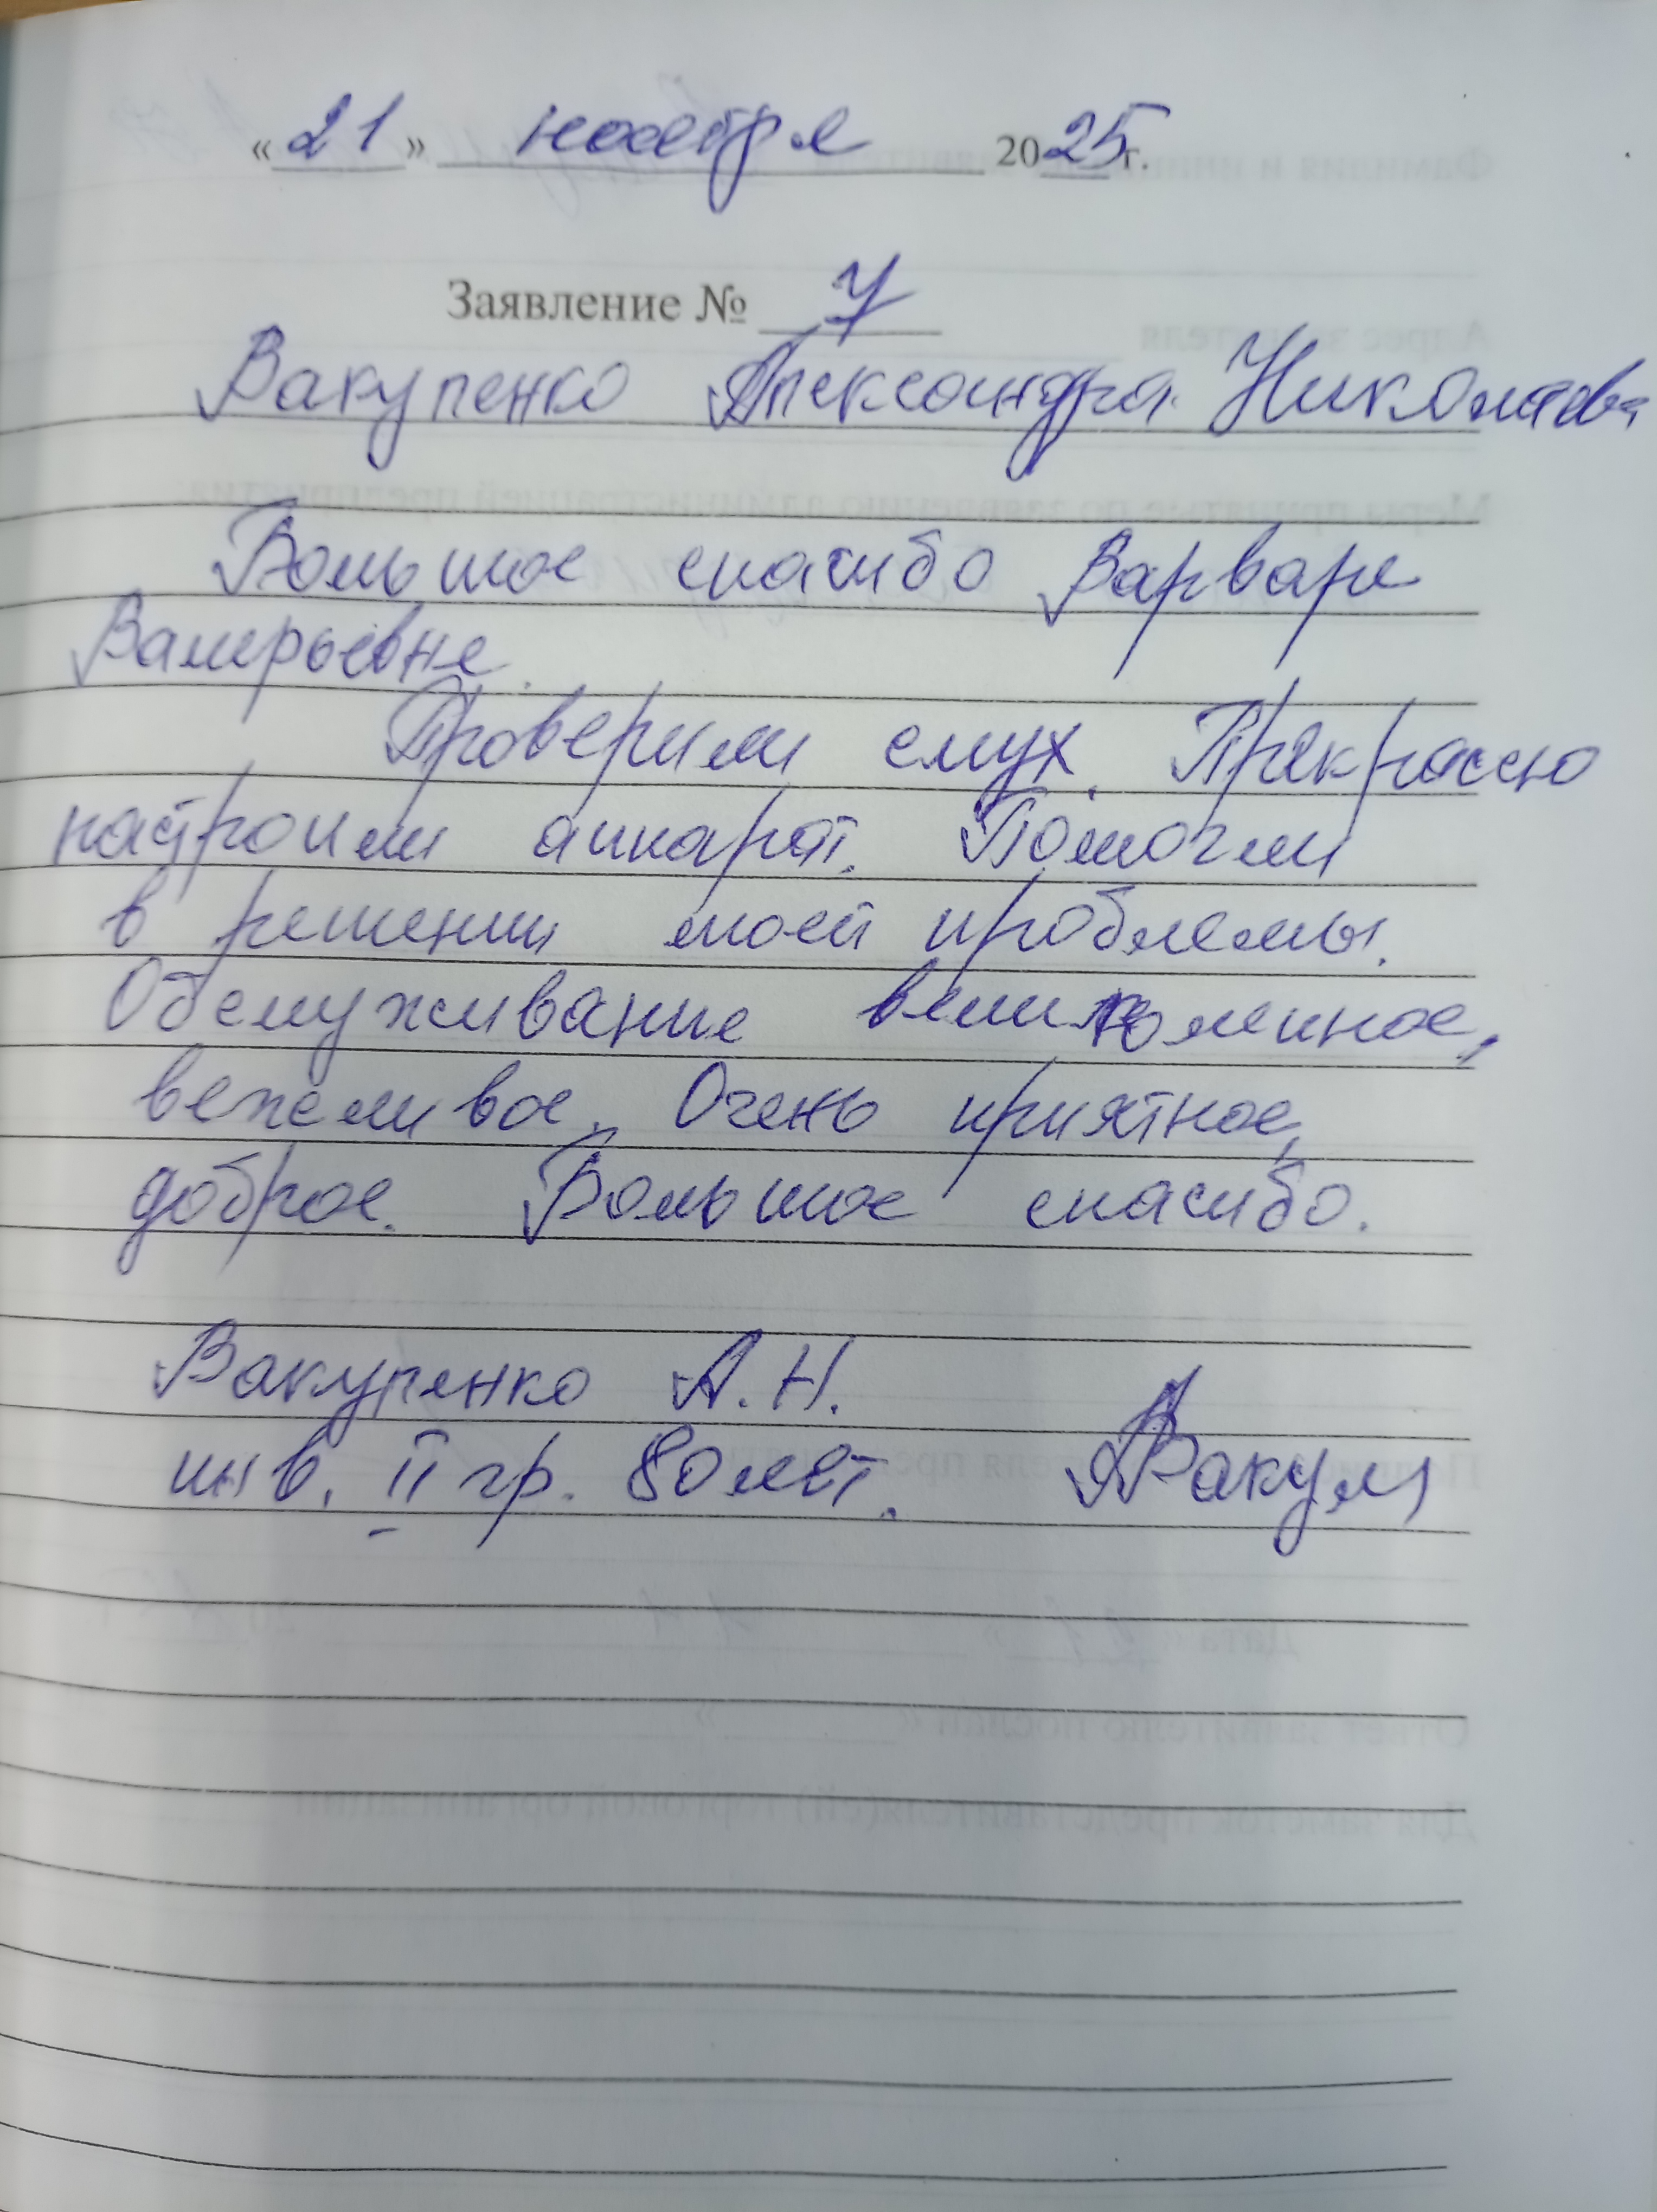 «21» ноября 2025г.
Заявление № 7
Вакупенко Александра Николаевна
Большое спасибо Варваре
Валерьевне.
Проверили слух. Прекрасно
настроили аппарат. Помогли
в решении моей проблемы.
Обслуживание великолепное,
вежеливое. Очень приятное,
доброе. Большое спасибо.
Вакупенко А.Н.
инв. II гр. 80 лет.